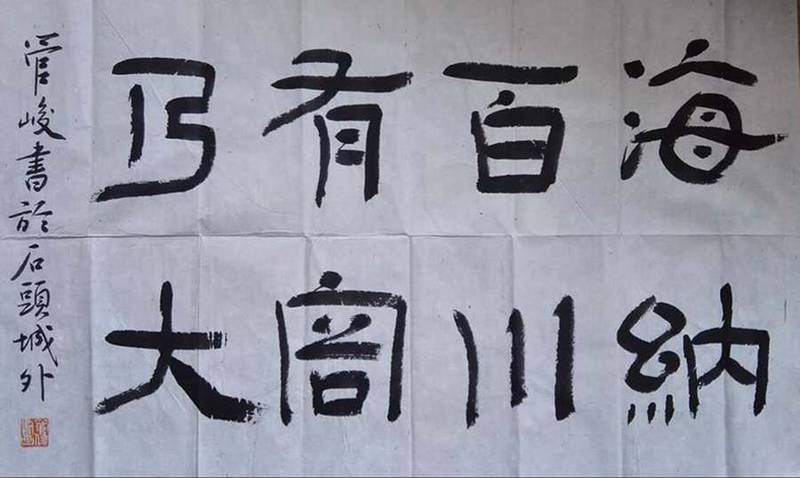 海納
百川
有容
乃大
管峻書於石頭城外